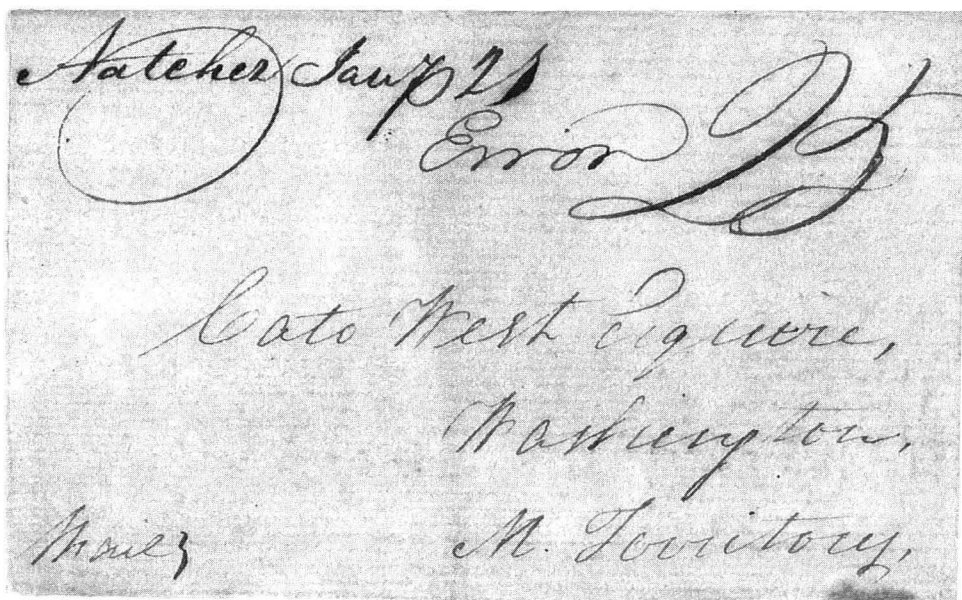 Natchez Jany 21
Error 25
Cato West Esquire,
Washington,
M. Territory,
Mail